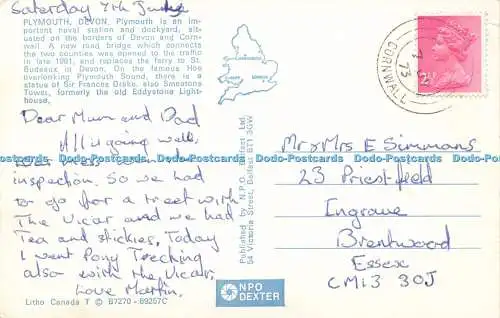 Saturday 7th June
PLYMOUTH, DEVON. Plymouth is an im-
portant naval station and dockyard, sit-
uated on the borders of Devon and Corn-
wall. A new road bridge which connects
the two counties was opened to the traffic
in late 1961, and replaces the ferry to St.
Budeaux in Devon. On the famous Hoe
overlooking Plymouth Sound, there is a
statue of Sir Francis Drake, also Smeatons
Tower, formerly the old Eddystone Light-
house.
Dear Mum and Dad
All is going well,
inspection. So we had
to go for a treet with
The Vicar and we had
Tea and stickies, Today
I went Pony Trecking
also with the Vicar,
Love Martin.
Litho Canada T © B7270 - 89257C
Published by N.P.O. Belfast Ltd
54 Victoria Street, Belfast BT1 3GW
NPO
DEXTER
CORNWALL
73
2½
Mr & Mrs E Simmons
23 Priestfield
Ingrave
Brentwood
Essex
CM13 3OJ
Dodo-Postcards Dodo-Postcards Dodo-Postcards Dodo-Postcards Dodo-Postcards